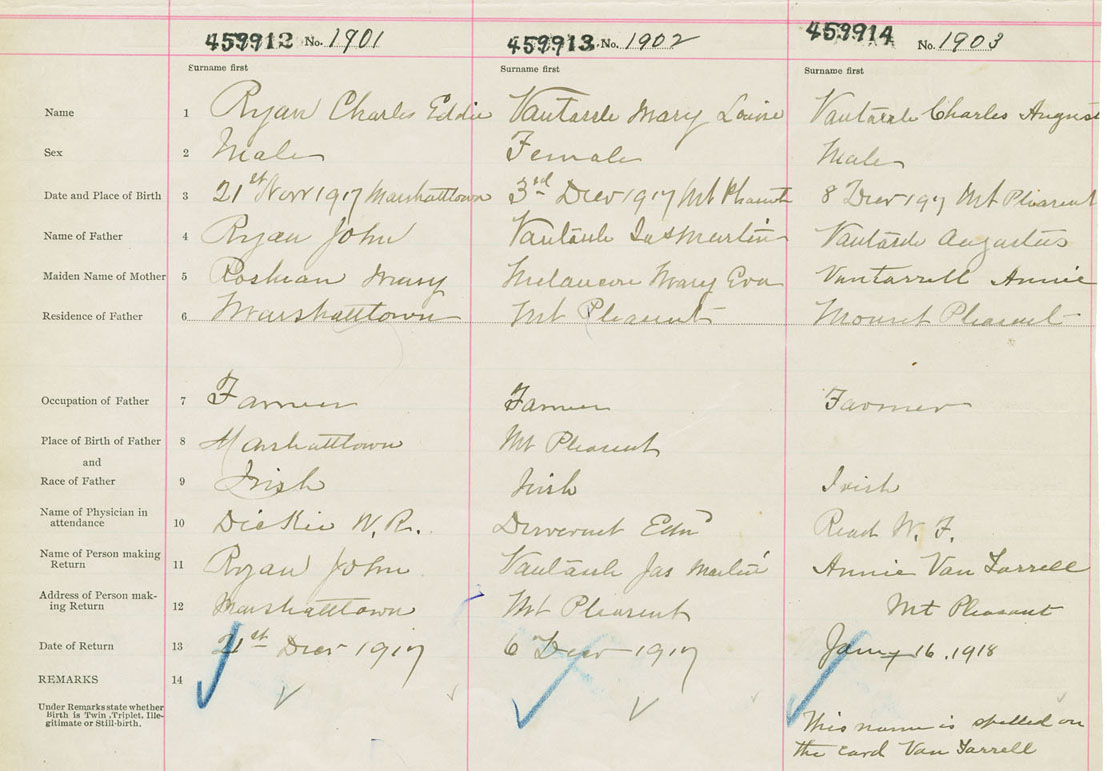 459912 No. 1901 459913 No. 1902 459914 No. 1903
Surname first Surname first Surname first
Name 1 Ryan Charles Eddie Vantassle Mary Louise Vantassle Charles August
Sex 2 Male Female Male
Date and Place of Birth 3 21st Novr 1917 Marshalltown 3rd Decr 1917 Mt Pleasent 8 Decr 1917 Mt Pleasent
Name of Father 4 Ryan John Vantassle Jas Martin Vantassle Augustus
Maiden Name of Mother 5 Mary Melancon Mary Eva Van Tarrell Annie
Residence of Father 6 Marshalltown Mt Pleasent Mount Pleasent
Occupation of Father 7 Farmer Farmer Farmer
Place of Birth of Father 8 Marshalltown Mt Pleasent
and
Race of Father 9 Irish Irish Irish
Name of Physician in
attendance 10 Dickie W.R. Edm Read W. F.
Name of Person making
Return 11 Ryan John Vantassle Jas Martin Annie Van Tarrell
Address of Person mak-
ing Return 12 Marshalltown Mt Pleasent Mt Pleasant
Date of Return 13 21st Decr 1917 6 Decr 1917 Jany 16, 1918
REMARKS 14
Under Remarks state whether
Birth is Twin, Triplet, Ille-
gitimate or Still-birth.
This name is spelled on
the card Van Tarrell